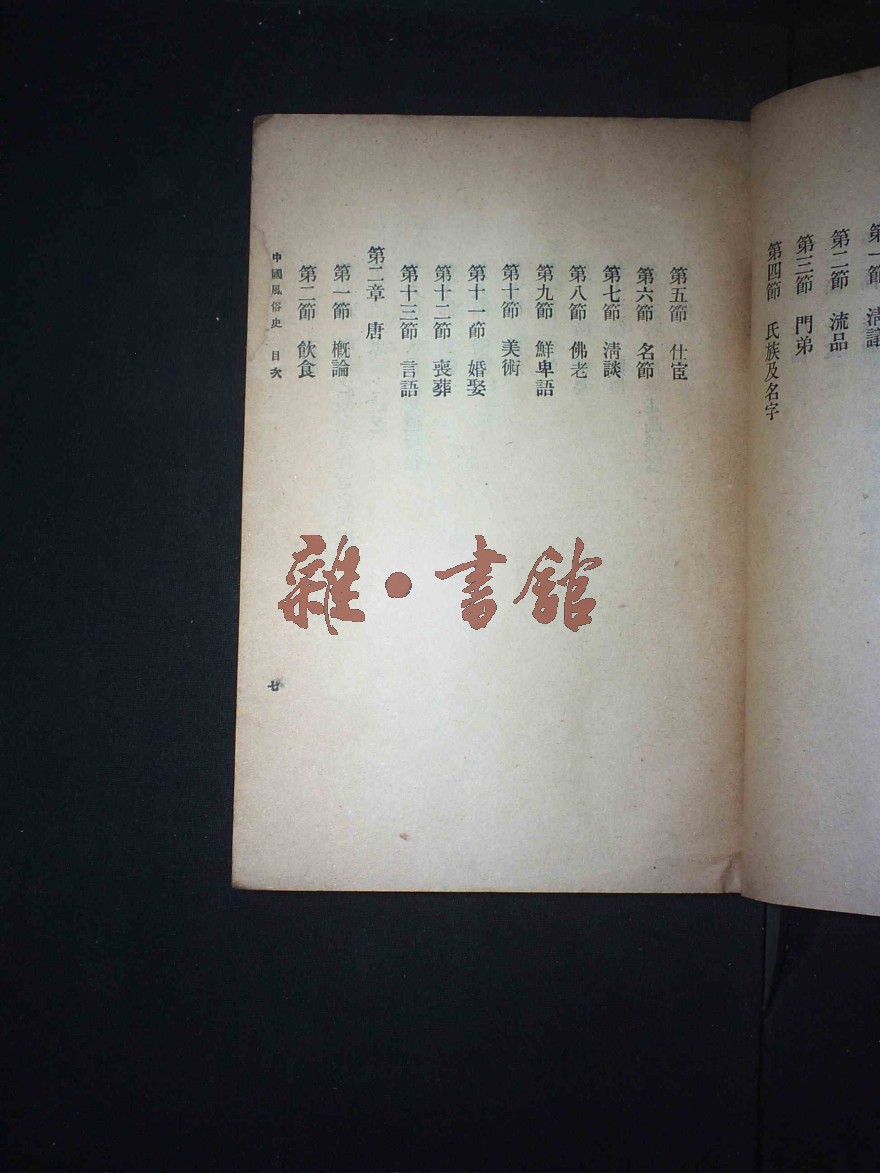 第一節　清議
第二節　流品
第三節　門弟
第四節　氏族及名字
第五節　仕宦
第六節　名節
第七節　清談
第八節　佛老
第九節　鮮卑語
第十節　美術
第十一節　婚娶
第十二節　喪葬
第十三節　言語
第二章　唐
第一節　槪論
第二節　飲食
中國風俗史　目次
七
雜・書館